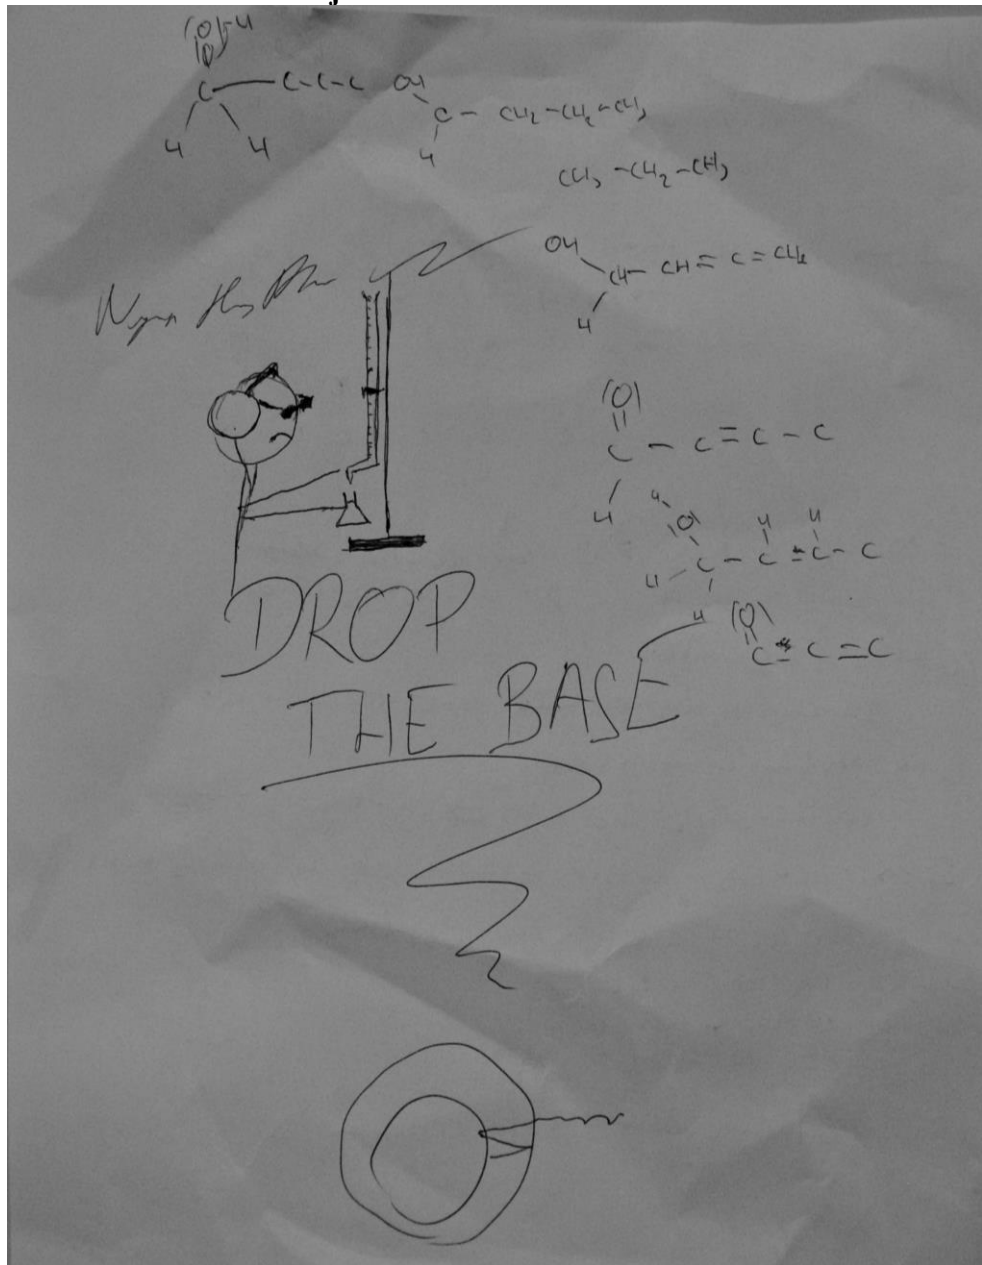 (O)-H
C — C-C-C
H H
OH
C - CH2-CH2-CH3
H
CH3-CH2-CH3
OH
CH-CH=C=CH2
H
(O)
C - C=C-C
H
H
(O) H H
H-C-C=C-C
H
(O)
C=C=C
DROP
THE BASE